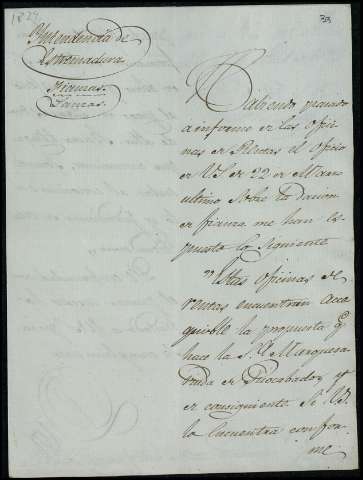 1824
33
Yntendencia de
Estremadura
Fianzas
Habiendo pasado
a informe de las Ofici-
nas de Rentas el oficio
de V.S. de 22 de Marzo
ultimo sobre la dacion
de fianza me han es-
puesto lo siguiente
"Estas Oficinas de
rentas encuentran acce-
quible la propuesta q.e
hace la S.ra Marquesa
Viuda de
de consiguiente si V.S.
la encuentra confor-
me